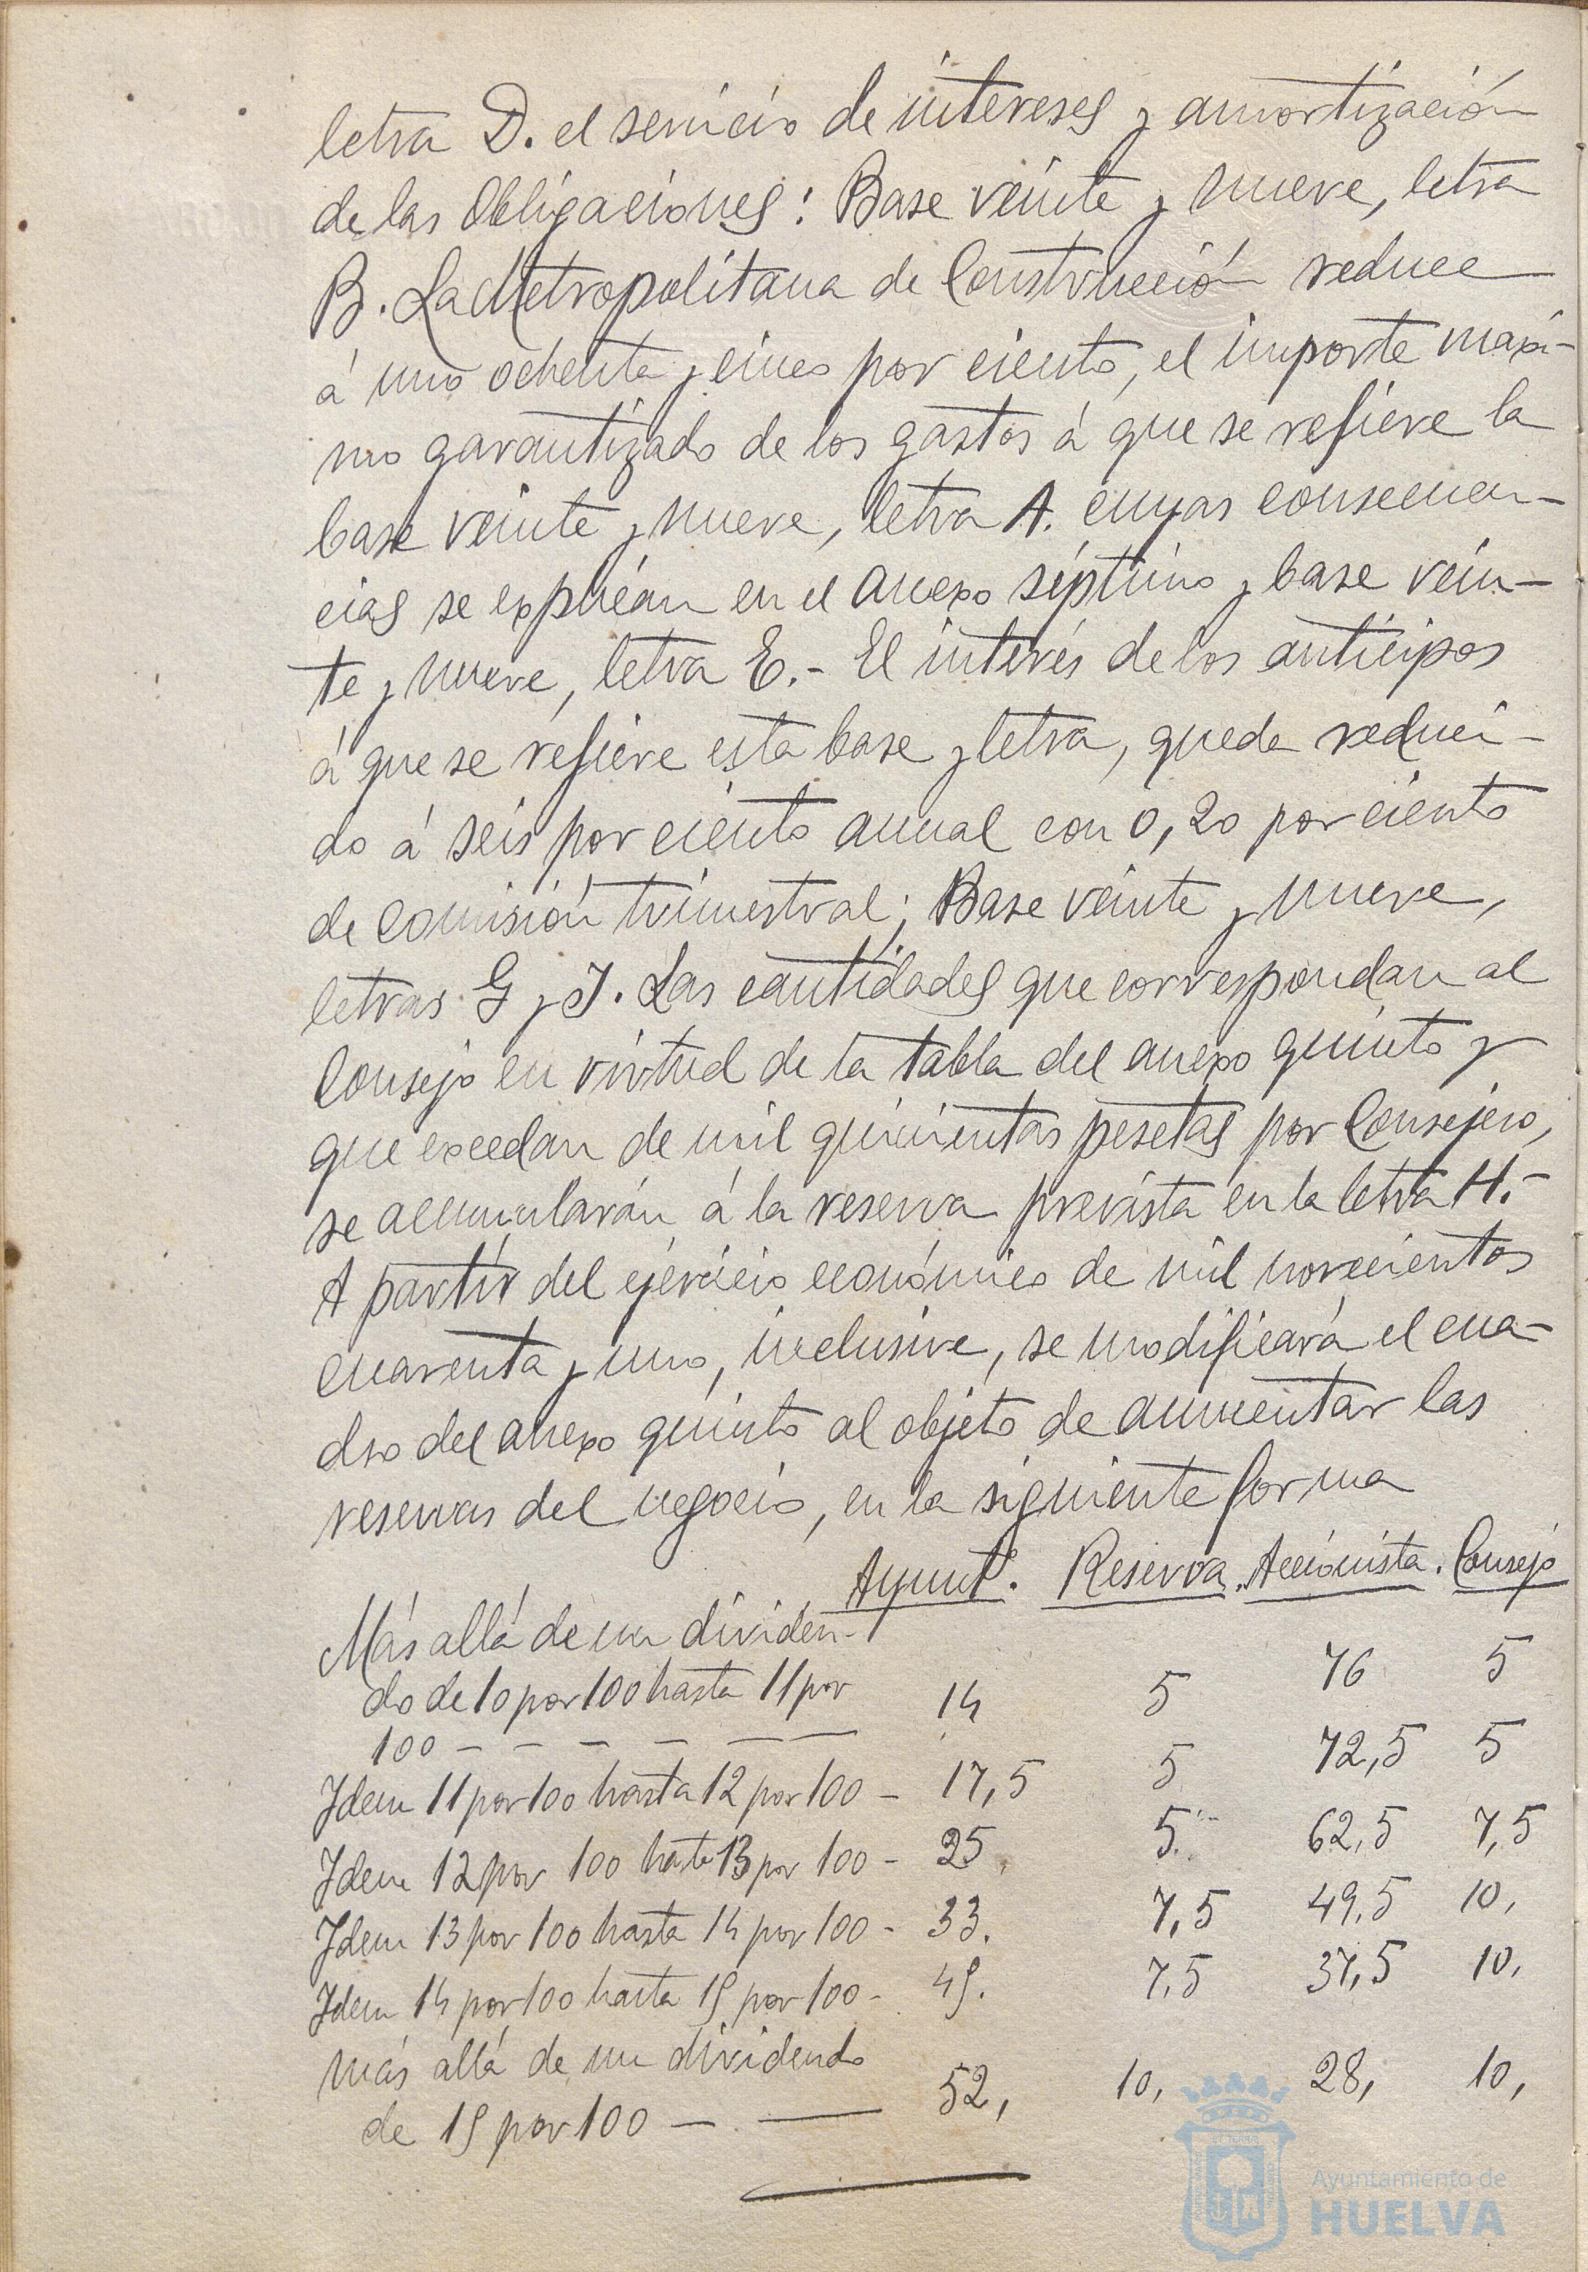 letra D. el servicio de intereses y amortización
de las Obligaciones: Base veinte y nueve, letra
B. La Metropolitana de Construcción reduce
á uno ochenta y cinco por ciento, el importe maxi-
mo garantizado de los gastos á que se refiere la
base veinte y nueve, letra A. cuyas consecuen-
cias se explican en el anexo séptimo y base vein-
te y nueve, letra E.- El interés de los anticipos
á que se refiere esta base y letra, queda reduci-
do á seis por ciento anual con 0,20 por ciento
de comisión trimestral; Base veinte y nueve,
letras G y J. Las cantidades que correspondan al
Consejo en virtud de la tabla del anexo quinto y
que excedan de mil quinientas pesetas por Consejero,
se acumularán á la reserva prevista en la letra H.-
A partir del ejercicio económico de mil novecientos
cuarenta y uno, inclusive, se modificará el cua-
dro del anexo quinto al objeto de aumentar las
reservas del negocio, en la siguiente forma
Ayuntº. Reserva. Accionista. Consejo
Más allá de un dividen-
do de 10 por 100 hasta 11 por
100 - - - - - - 14 5 76 5
Idem 11 por 100 hasta 12 por 100 - 17,5 5 72,5 5
Idem 12 por 100 hasta 13 por 100 - 25 5 62,5 7,5
Idem 13 por 100 hasta 14 por 100 - 33. 7,5 49,5 10,
Idem 14 por 100 hasta 15 por 100 - 45. 7,5 37,5 10,
más allá de un dividendo
de 15 por 100 - - 52, 10, 28, 10,
Ayuntamiento de
HUELVA